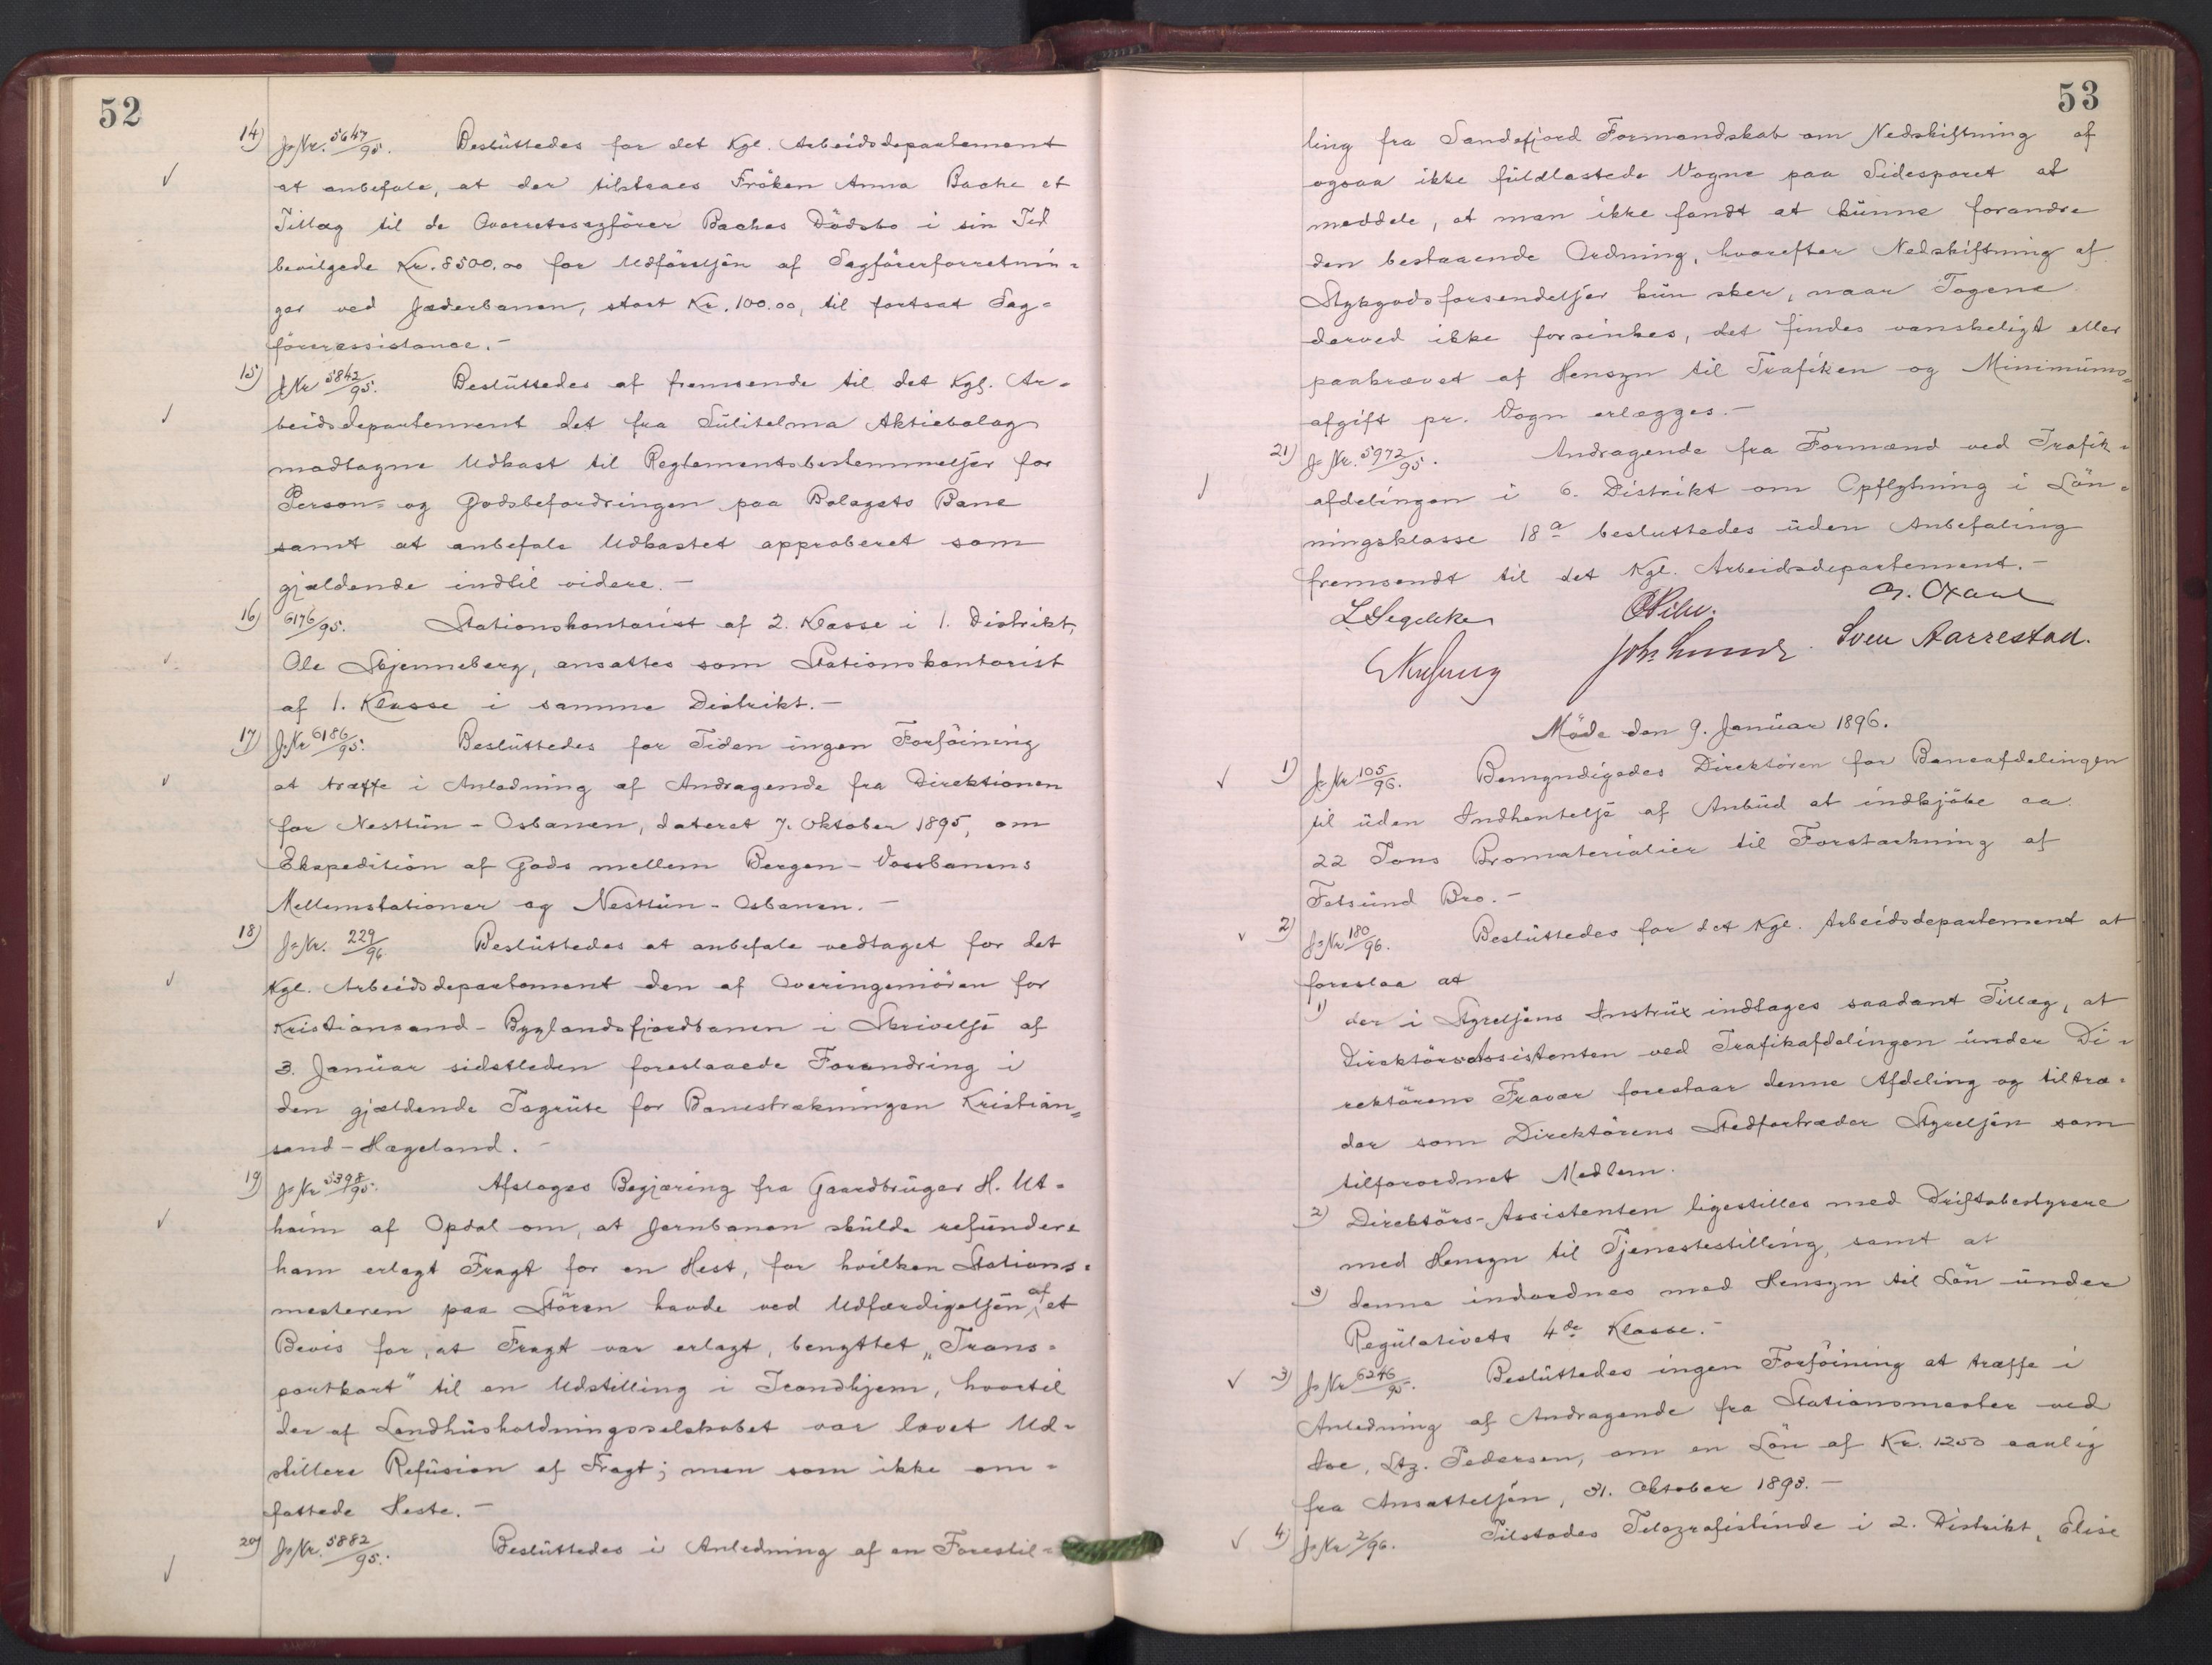 52
14) J. Nr. 5647/95. Besluttedes for det Kgl. Arbeidsdepartement
at anbefale, at der tilstaaes Fröken Anna Bache et
Tillæg til de Overretssagförer Baches Dödsbo i sin Tid
bevilgede Kr. 8500.00 for Udförelsen af Sagförerforretnin=
ger ved Jæderbanen, stort Kr. 100.00, til fortsat Sag=
förerassistance. —
15) J. Nr 5842/95. Besluttedes af fremsende til det Kgl. Ar=
beidsdepartement det fra Sulitelma Aktiebolag
modtagne Udkast til Reglementsbestemmelser for
Person= og Godsbefordringen paa Bolagets Bane
samt at anbefale Udkastet approberet som
gjældende indtil videre. —
16) 6176/95. Stationskontorist af 2. Klasse i 1. Distrikt,
Ole Skjenneberg, ansattes som Stationskontorist
af 1. Klasse i samme Distrikt. —
17) J. Nr 6186/95. Besluttedes for Tiden ingen Forföining
at træffe i Anledning af Andragende fra Direktionen
for Nesttun - Osbanen, dateret 7. Oktober 1895, om
Ekspedition af Gods mellem Bergen - Vossbanens
Mellemstationer og Nesttun - Osbanen. —
18) J. Nr. 229/96 Besluttedes at anbefale vedtaget for det
Kgl. Arbeidsdepartement den af Overingeniören for
Kristiansand - Byglandsfjordbanen i Skrivelse af
3. Januar sidstleden foreslaaede Forandring i
den gjældende Togrute for Banestrækningen Kristian=
sand - Hægeland. —
19) J. Nr 5398/95. Afsloges Begjæring fra Gaardbruger H. Ut=
heim af Opdal om, at Jernbanen skulde refundere
ham erlagt Fragt for en Hest, for hvilken Stations=
mesteren paa Stören havde ved Udfærdigelsen af et
Bevis for, at Fragt var erlagt, benyttet „Trans=
portkort" til en Udstilling i Trondhjem, hvortil
der af Landhusholdningsselskabet var lovet Ud=
stillere Refusion af Fragt; men som ikke om=
fattede Heste. —
20) J. Nr. 5882/95. Besluttedes i Anledning af en Forestil=
53
ling fra Sandefjord Formandskab om Nedskiftning af
ogsaa ikke fuldlastede Vogne paa Sidesporet at
meddele, at man ikke fandt at kunne forandre
den bestaaende Ordning, hvorefter Nedskiftning af
Stykgodsforsendelser kun sker, naar Togene
derved ikke forsinkes, det findes vanskeligt eller
paakrævet af Hensyn til Trafiken og Minimums=
afgift pr. Vogn erlægges. —
21) J. Nr. 5972/95. Andragende fra Formænd ved Trafik=
afdelingen i 6. Distrikt om Opflytning i Lön=
ningsklasse 18a besluttedes uden Anbefaling
fremsendt til det Kgl. Arbeidsdepartement. —
L Segelcke
Sven Aarrestad.
Möde den 9. Januar 1896.
1) J. Nr 105/96. Bemyndigedes Direktören for Baneafdelingen
til uden Indhentelse af Anbud at indkjöbe ca.
22 Tons Bromaterialier til Forstærkning af
Fetsund Bro. —
2) J. Nr 180/96. Besluttedes for det Kgl. Arbeidsdepartement at
foreslaa at
1) der i Styrelsens Instrux indtages saadant Tillæg, at
Direktörsassistenten ved Trafikafdelingen under Di=
rektörens Fravær forestaar denne Afdeling og tiltræ=
der som Direktörens Stedfortræder Styrelsen som
tilforordnet Medlem.
2) Direktörs-Assistenten ligestilles med Driftsbestyrere
med Hensyn til Tjenestestilling, samt at
3) denne indordnes med Hensyn til Lön under
Regulativets 4de Klasse. —
3) J. Nr 6246/95. Besluttedes ingen Forföining at træffe i
Anledning af Andragende fra Stationsmester ved
Aae, Ltz. Pedersen, om en Lön af Kr. 1250 aarlig
fra Ansættelsen, 31. Oktober 1893. —
4) J. Nr 2/96. Tilstodes Telegrafistinde i 2. Distrikt, Elise